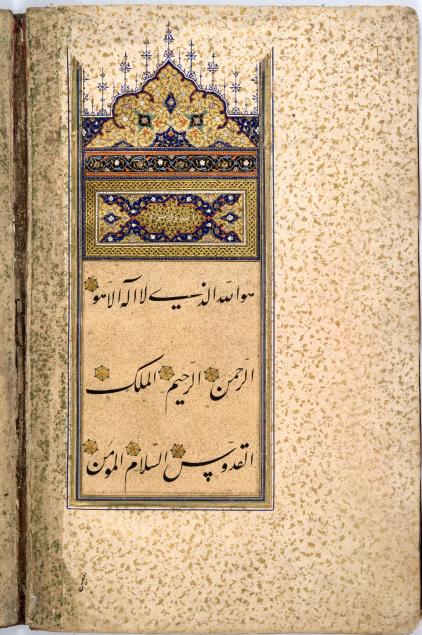 هوالله الذي لا اله الا هو
الرّحمن الرّحيم الملك
القدّوس السّلام المؤمن